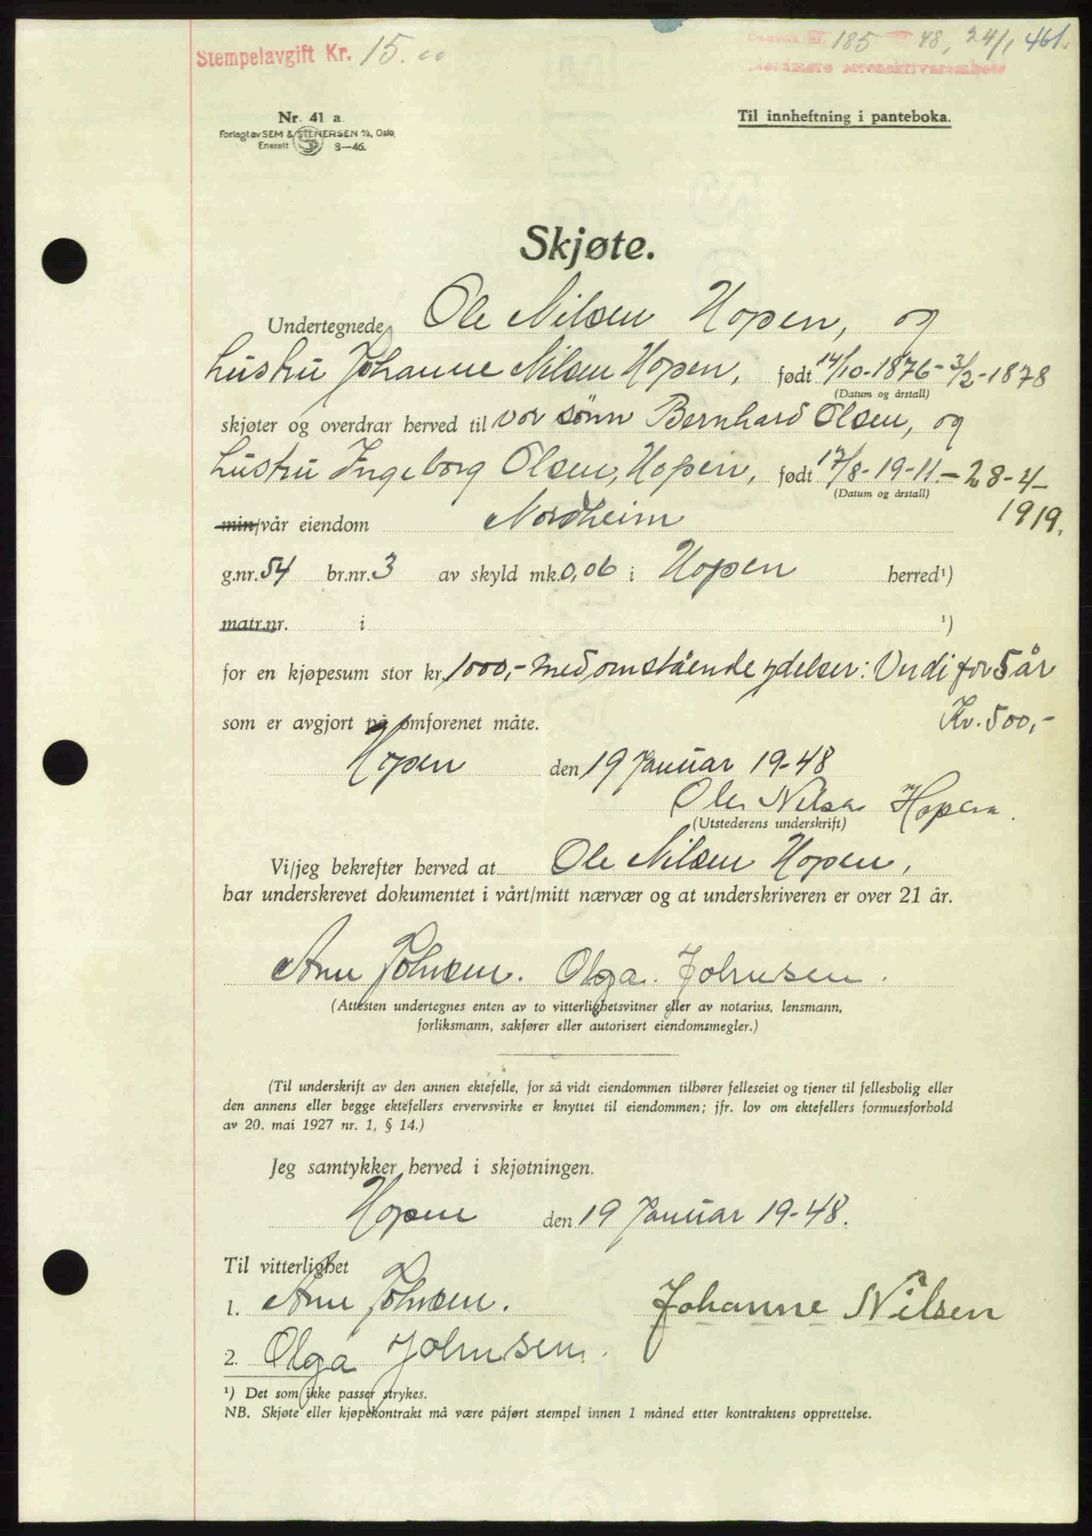 Stempelavgift Kr. 15.00
Dagbok nr. 185 48, 24/1 461.
Nordmøre sorenskriverembete
Nr. 41 a.
Forlagt av SEM & STENERSEN A/S, Oslo
Enerett 8—46.
Til innheftning i panteboka.
Skjøte.
Undertegnede Ole Nilsen Hopen, og
hustru Johanne Nilsen Hopen, født 14/10-1876-3/2-1878
(Datum og årstall)
skjøter og overdrar herved til vor sønn Bernhard Olsen, og
hustru Ingeborg Olsen, Hopen, født 17/8-19-11-28-4-
(Datum og årstall)
1919.
min/vår eiendom Nordheim
g.nr. 54 br.nr. 3 av skyld mk. 0,06 i Hopen herred¹)
matr.nr. i ¹)
for en kjøpesum stor kr. 1000,- med omstående ydelser: Verdi for 5 år
som er avgjort på omforenet måte. Kr. 500,-
Hopen den 19 Januar 19-48
Ole Nilsen Hopen.
(Utstederens underskrift)
Vi/jeg bekrefter herved at Ole Nilsen Hopen,
har underskrevet dokumentet i vårt/mitt nærvær og at underskriveren er over 21 år.
Arne Johnsen. Olga Johnsen.
(Attesten undertegnes enten av to vitterlighetsvitner eller av notarius, lensmann,
forliksmann, sakfører eller autorisert eiendomsmegler.)
(Til underskrift av den annen ektefelle, for så vidt eiendommen tilhører felleseiet og tjener til fellesbolig eller
den annens eller begge ektefellers ervervsvirke er knyttet til eiendommen; jfr. lov om ektefellers formuesforhold
av 20. mai 1927 nr. 1, § 14.)
Jeg samtykker herved i skjøtningen.
Hopen den 19 Januar 19-48.
Til vitterlighet
1. Arne Johnsen. Johanne Nilsen
2. Olga Johnsen.
¹) Det som ikke passer strykes.
NB. Skjøte eller kjøpekontrakt må være påført stempel innen 1 måned etter kontraktens opprettelse.